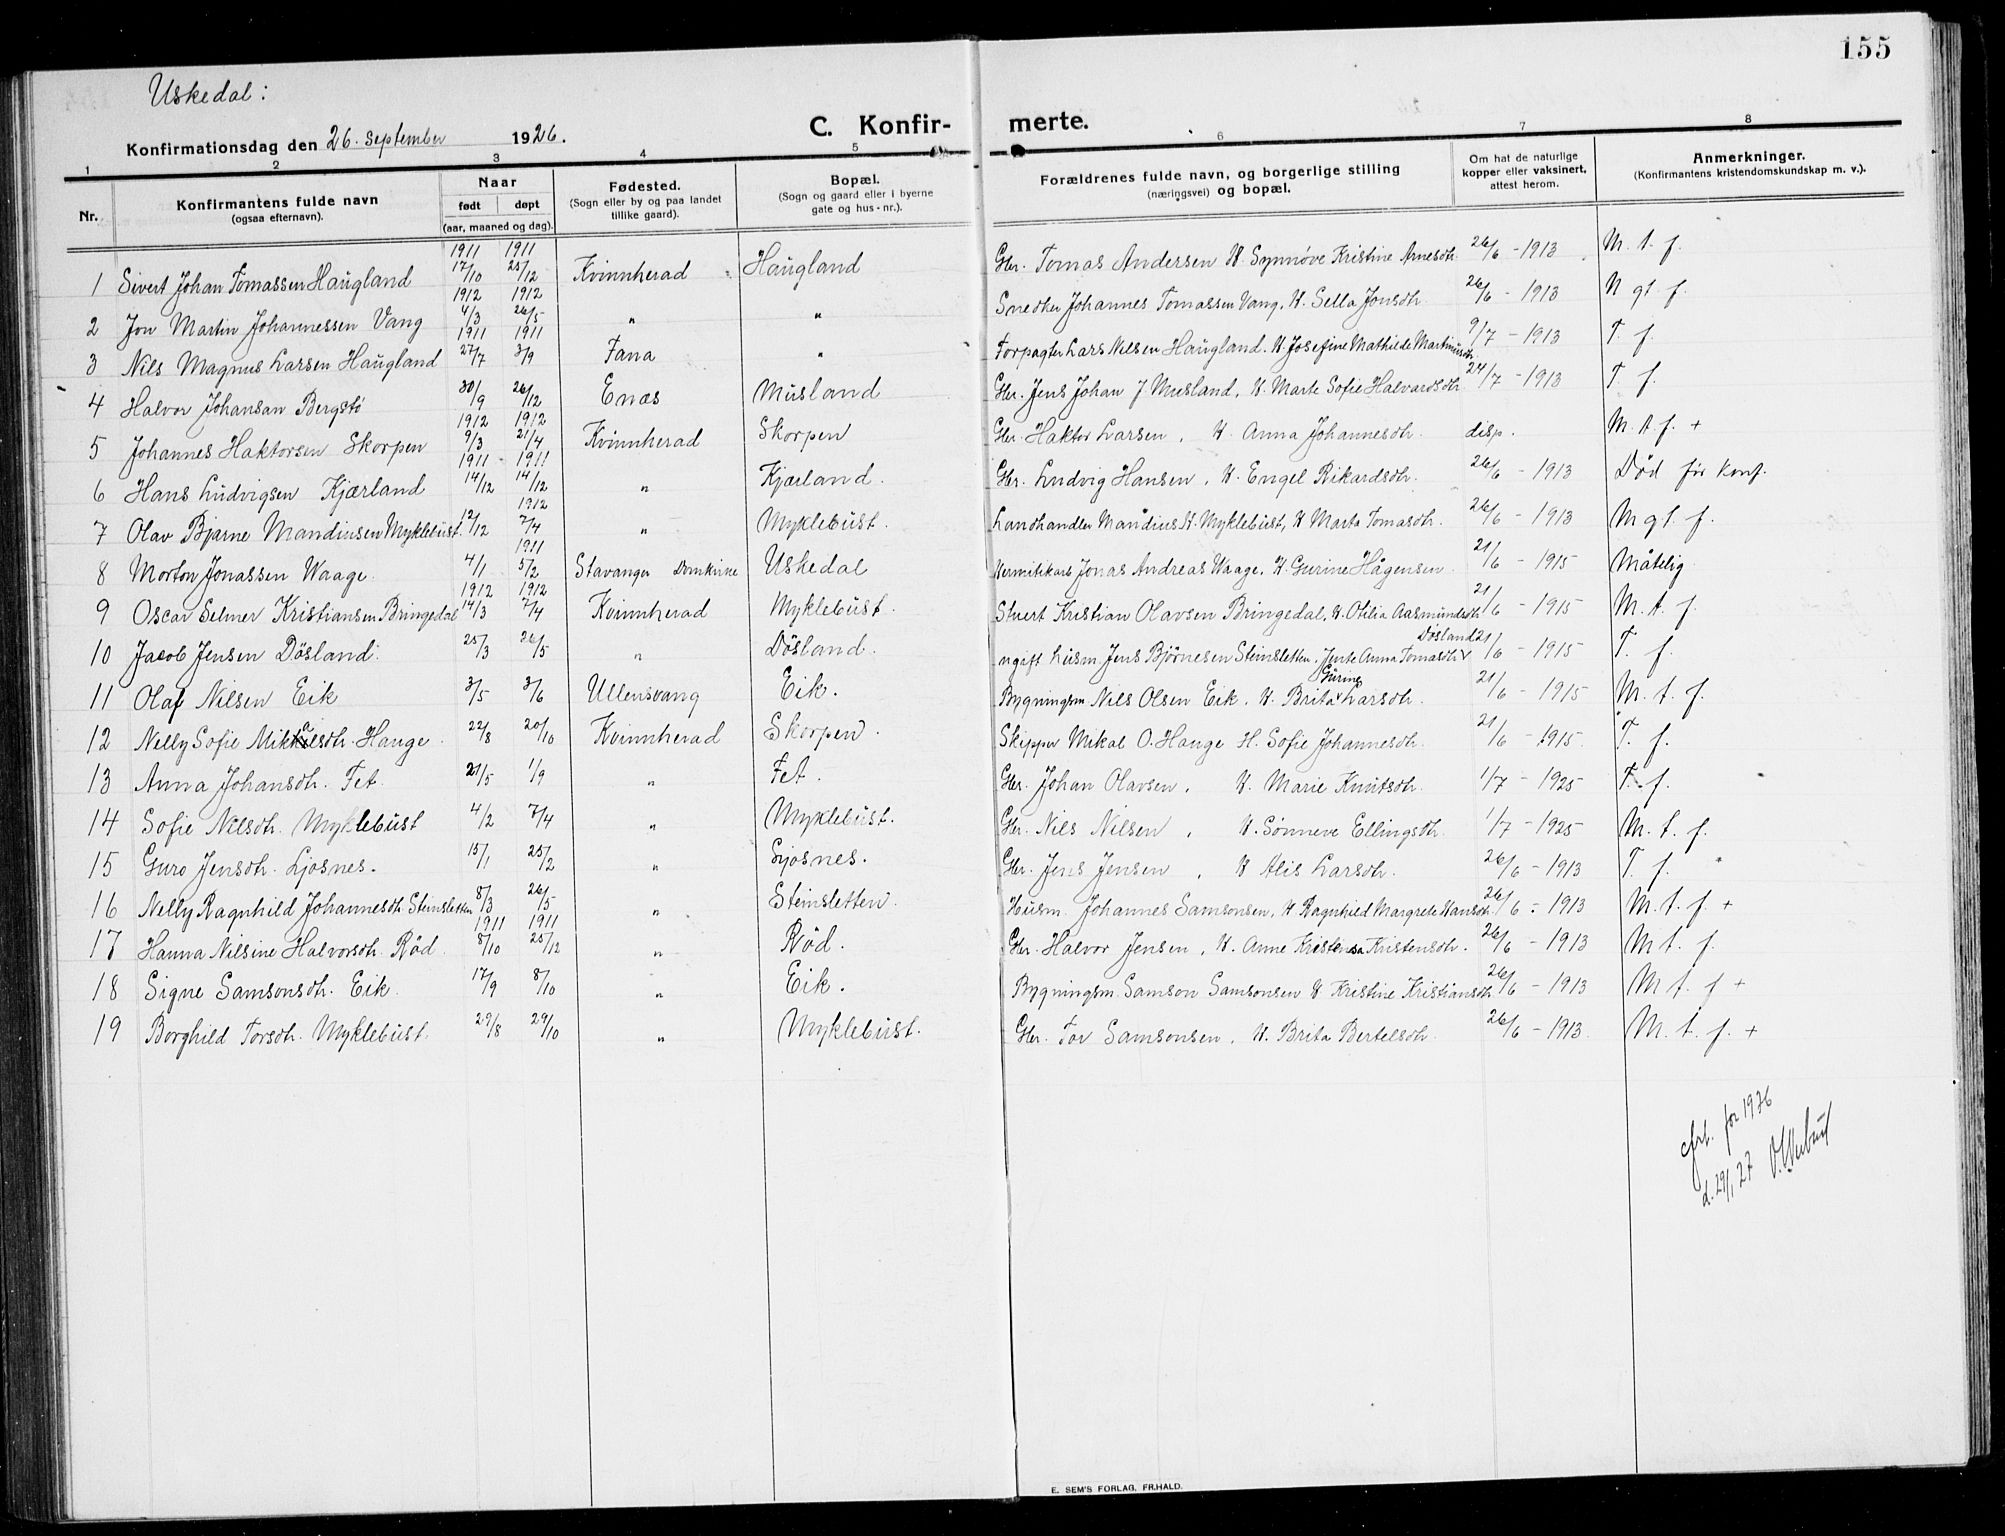 155
Uskedal:
Konfirmationsdag den 26. september 1926.
C. Konfir- merte.
1 2 3 4 5 6 7 8
Nr.
Konfirmantens fulde navn
(ogsaa efternavn).
Naar
født døpt
(aar, maaned og dag).
Fødested.
(Sogn eller by og paa landet
tillike gaard).
Bopæl.
(Sogn og gaard eller i byerne
gate og hus-nr.).
Forældrenes fulde navn, og borgerlige stilling
(næringsvei) og bopæl.
Om hat de naturlige
kopper eller vaksinert,
attest herom.
Anmerkninger.
(Konfirmantens kristendomskundskap m. v.).
1911 1911
1 Sivert Johan Tomassen Haugland 17/10 25/12 Kvinnherad Haugland Gbr. Tomas Andersen H. Synnøve Kristine Arnesdtr. 26/6 - 1913 M. t. f.
1912 1912
2 Jon Martin Johannessen Vang 4/3 26/5 " " Snedker Johannes Tomassen Vang, H. Sella Jonsdtr. 26/6 - 1913 N gt f.
1911 1911
3 Nils Magnus Larsen Haugland 27/7 3/9 Fana " Forpagter Lars Nilsen Haugland. H. Josefine Mathilde Martinusdtr. 9/7 - 1913 T. f.
4 Halvor Johansan Bergstø 30/9 26/12 Enæs Musland Gbr. Jens Johan J. Musland, H. Marte Sofie Halvardsdtr. 24/7 - 1913 T. f.
1912 1912
5 Johannes Haktorsen Skorpen 9/3 21/4 Kvinnherad Skorpen Gbr. Haktor Larsen, H. Anna Johannesdtr. disp. M. t. f. +
1911 1911
6 Hans Ludvigsen Kjærland 14/12 14/12 " Kjærland. Gbr. Ludvig Hansen, H. Engel Rikardsdtr. 26/6 - 1913 Død før konf.
1912
7 Olav Bjarne Mandiusen Myklebust. 12/12 7/4 " Myklebust. Landhandler Mandius H. Myklebust, H. Marta Tomasdtr. 26/6 - 1913 M gt. f.
1911
8 Morton Jonassen Waage. 4/1 5/2 Stavanger Domkirke Uskedal Hermitikarb. Jonas Andreas Waage, H. Gurine Hågensen 21/6 - 1915 Måtelig
1912 1912
9 Oscar Selmer Kristiansen Bringedal 14/3 7/4 Kvinnherad Myklebust. Stuert Kristian Olavsen Bringedal, H. Otilia Aasmundsdtr. 21/6 - 1915 M. t. f.
10 Jacob Jensen Døsland. 25/3 26/5 " Døsland. ugift husm Jens Bjørnesen Steinsletten, Jente Anna Tomasdtr. Døsland 21/6 - 1915 T. f.
11 Olaf Nilsen Eik 3/5 3/6 Ullensvang Eik. Bygningsm Nils Olsen Eik, H. Brita Gurine Larsdtr. 21/6 - 1915 M. t. f.
12 Nelly Sofie Mikalsdtr. Hauge. 22/8 20/10 Kvinnherad Skorpen. Skipper Mikal O. Hauge H. Sofie Johannesdtr. 21/6 - 1915. T. f.
13 Anna Johansdtr. Fet. 21/5 1/9 " Fet. Gbr. Johan Olavsen, H. Marie Knutsdtr. 1/7 - 1925 T. f.
14 Sofie Nilsdtr. Myklebust 4/2 7/4 " Myklebust. Gbr. Nils Nilsen, H. Sønneve Ellingsdtr. 1/7 - 1925 M. t. f.
15 Guro Jensdtr. Ljosnes. 15/1 25/2 " Ljosnes. Gbr. Jens Jensen, H Alis Larsdtr. 26/6 - 1913 T. f.
16 Nelly Ragnhild Johannesdtr. Steinsletten 8/3 26/5 " Steinsletten. Husm. Johannes Samsonsen, H Ragnhild Margrete Hansdtr. 26/6 - 1913 M. t. f. +
1911 1911
17 Hanna Nilsine Halvorsdtr. Rød. 8/10 25/12 " Rød. Gbr. Halvor Jensen, H. Anne Kristensa Kristensdtr. 26/6 - 1913 M t. f.
18 Signe Samsonsdtr. Eik. 17/9 8/10 " Eik. Bygningsm. Samson Samsonsen H Kristine Kristiansdtr. 26/6 - 1913 M t. f +
19 Borghild Torsdtr. Myklebust. 29/8 29/10 " Myklebust. Gbr. Tor Samsonsen, H. Brita Bertelsdtr. 26/6 - 1913. M. t. f. +
for 1926
d. 29/1 27
E. SEM'S FORLAG, FR.HALD.